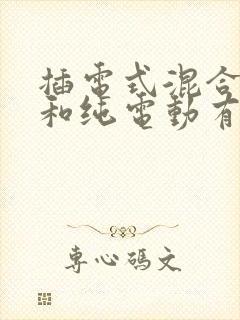 插電式混合
和纯電動有
專心碼文